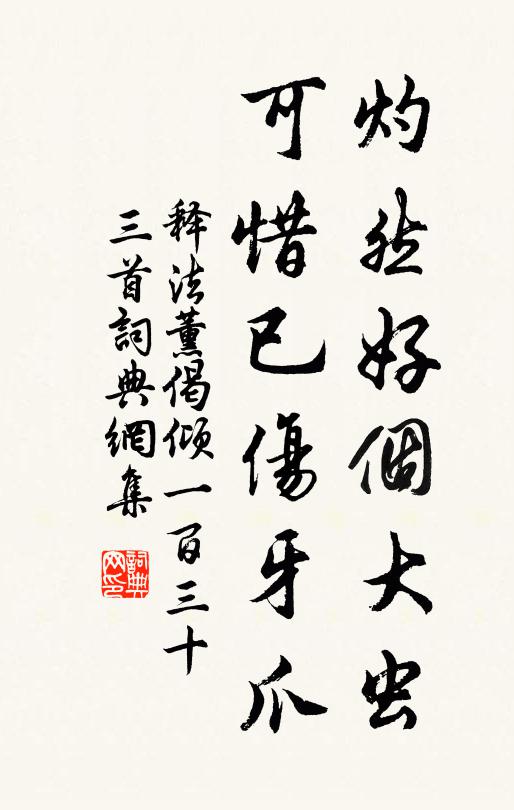 灼然好個大虫
可惜已傷牙爪
释法薰偈倾一百三十
三首詞典網集
詞典
网印